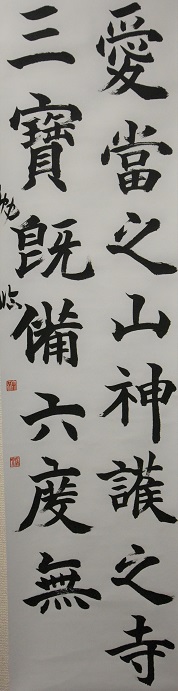 愛當之山神護之寺
三寶既備六度無